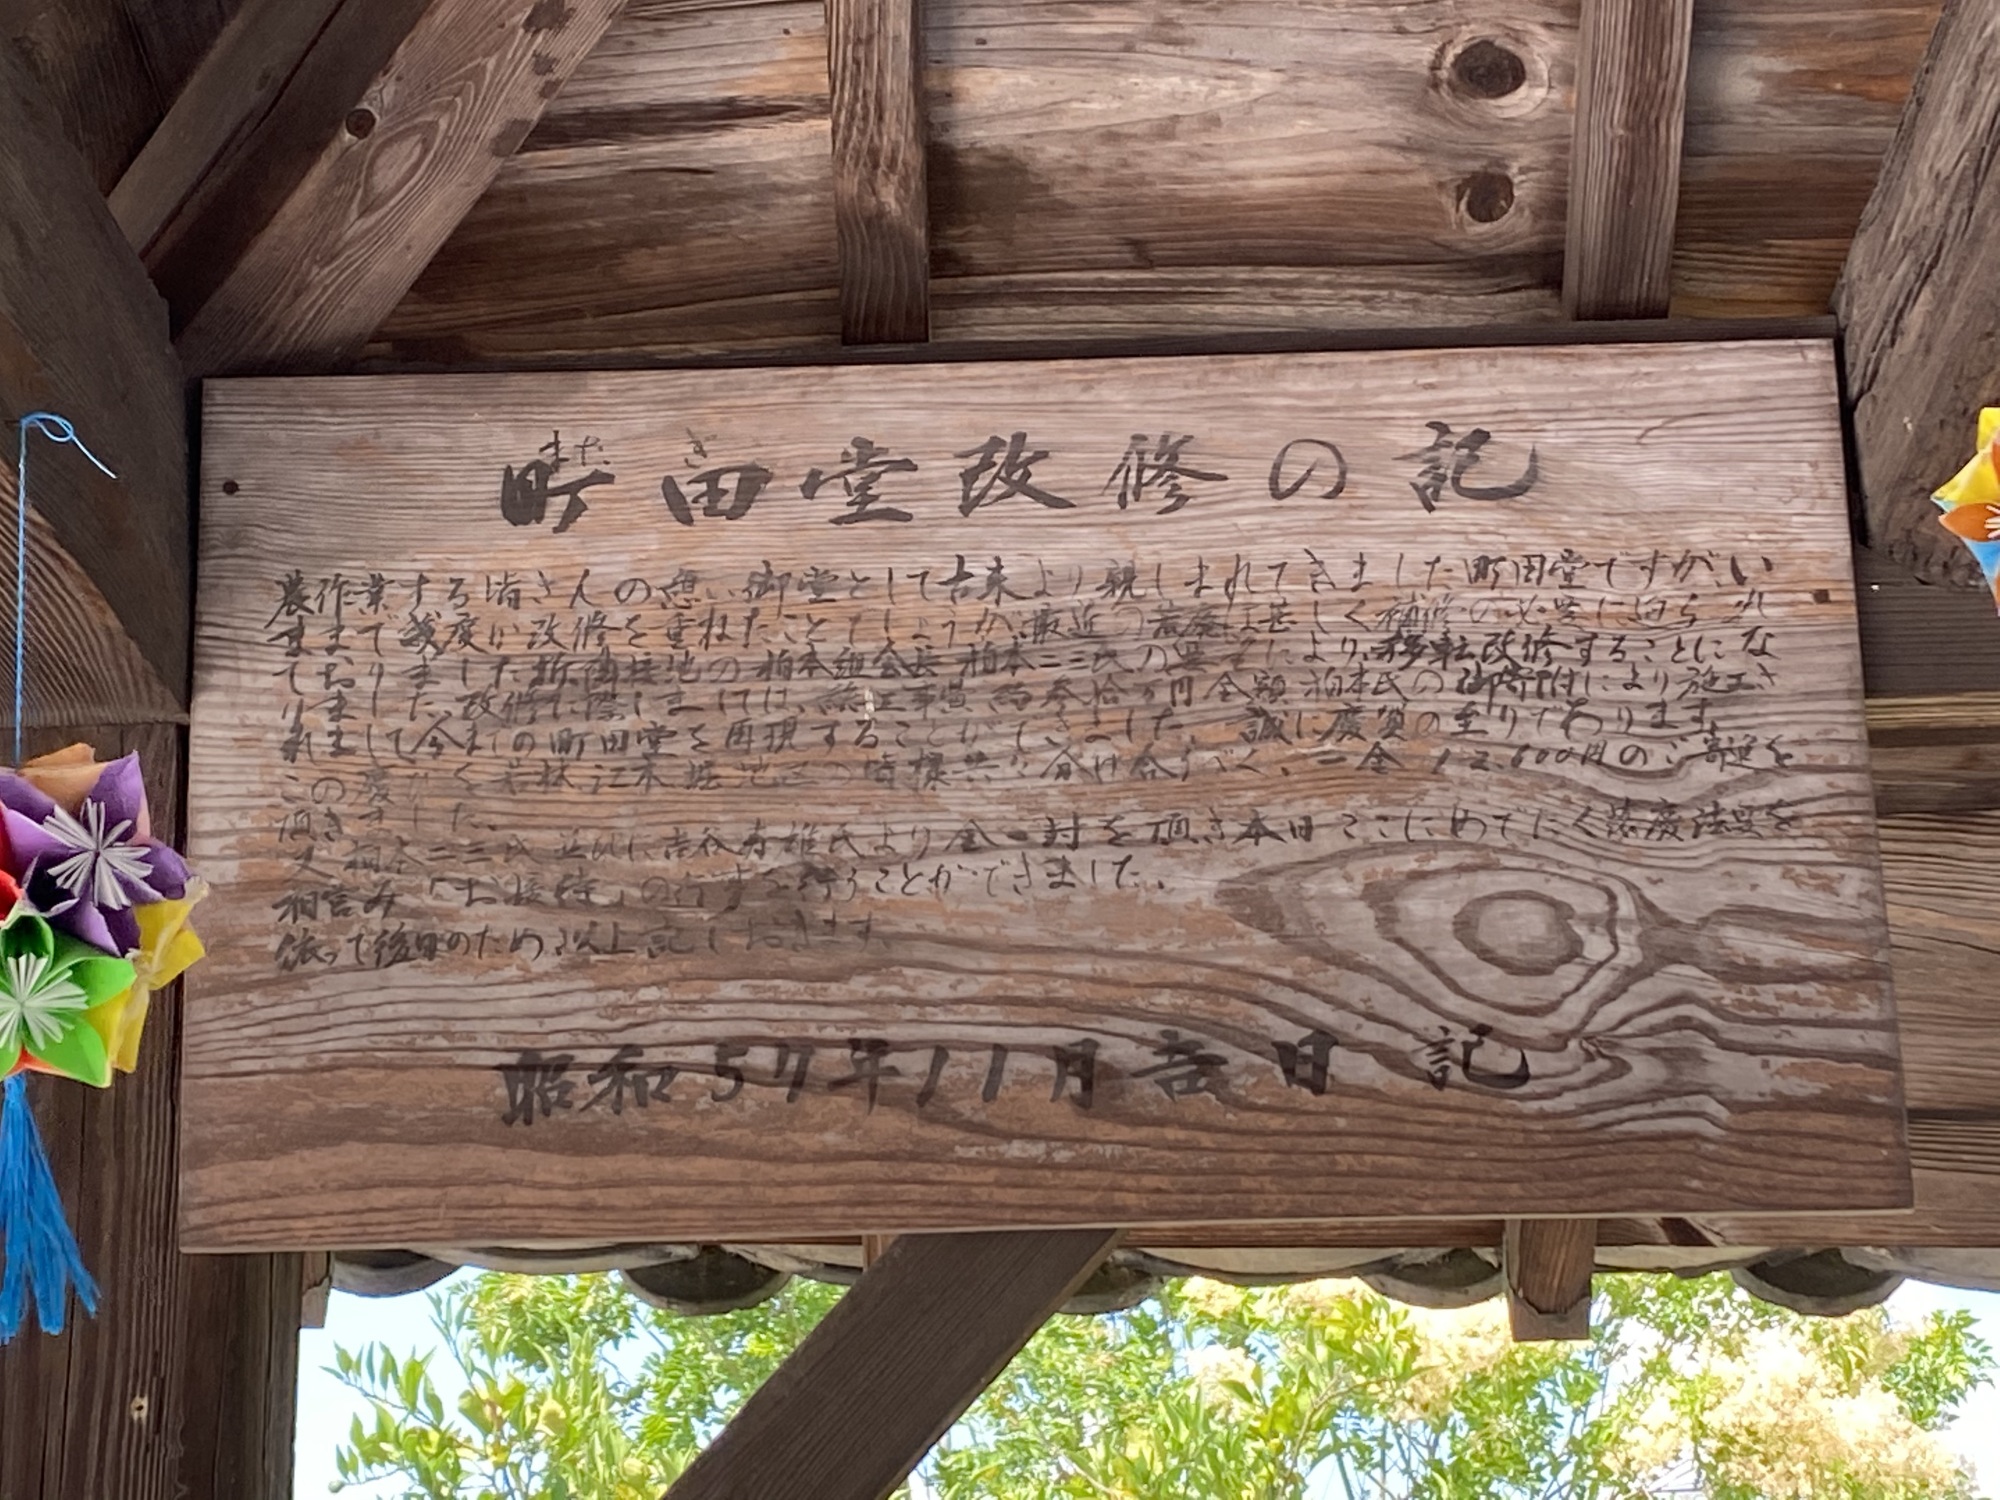 また ぎ
町田堂改修の記
農作業する皆さんの憩い御堂として古来より親しまれてきました町田堂ですが、い
ままで幾度か改修を重ねたことでしょうが、最近の荒廃は甚しく補修の必要に迫られ
ておりました折隣接地の柏本組会長柏本二三氏の によりこ移転改修することにな
りました。改修に際しましては、総工事費 参拾万円全額柏本氏の御寄付により施工さ
れまして今までの町田堂を再現することができました。誠に慶賀の至りであります。
この慶 く若林江木堀地区の皆様共々分け合うべく、一金12,600円のご寄進を
頂きました。
又柏本二三氏並びに吉谷寿雄氏より金一封を頂き本日ここにめでたく落慶法要を
相営み「お接待」の行事を行うことができました。
依って後日のため以上記しておきます。
昭和57年11月吉日 記